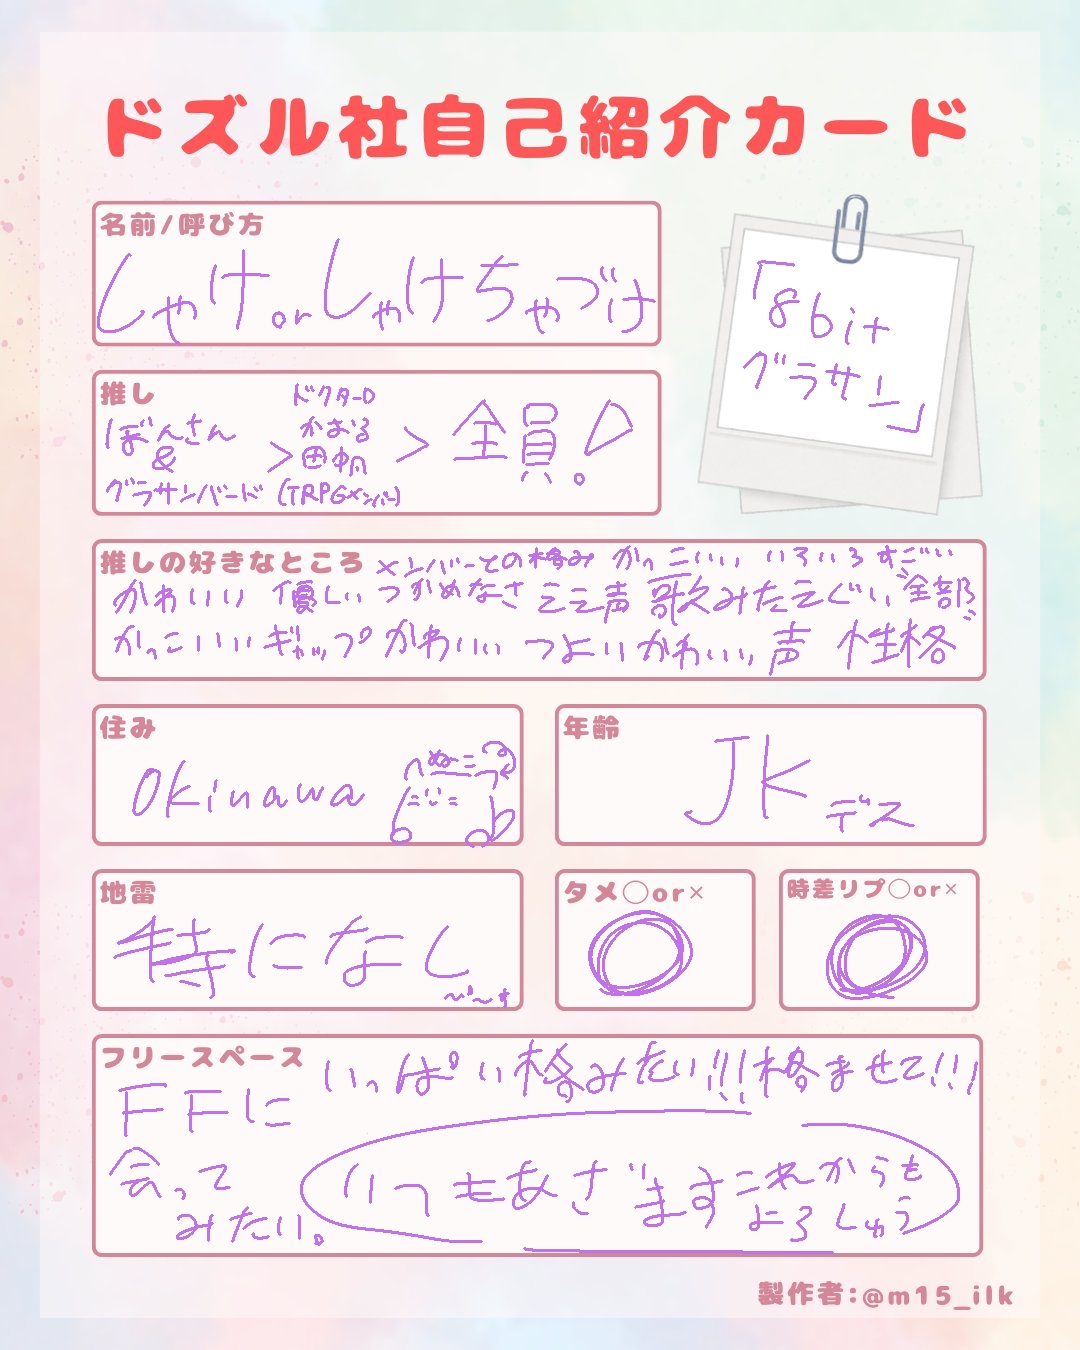 ドズル社自己紹介カード
名前/呼び方
しゃけorしゃけちゃづけ
「8bit
グラサン」
推し
ぼんさん
&
グラサンバード
>
ドクターD
かおる
田中凡
(TRPGメンバー)
>
全員!
推しの好きなところ
メンバーとの格み かっこいい いろいろ すごい
かわいい 優しい つかめなさ ここ声 歌みたえぐい 全部
かっこいい ギャップ かわいい つよい かわいい 声 性格
住み
Okinawa
年齢
JK デス
地雷
特になし
タメ〇or×
〇
時差リプ〇or×
〇
フリースペース
いっぱい格みたい!!!格ませて!!!
FFに
会って
みたい。
いつもあざます これからも
よろしゅう
製作者:@m15_ilk